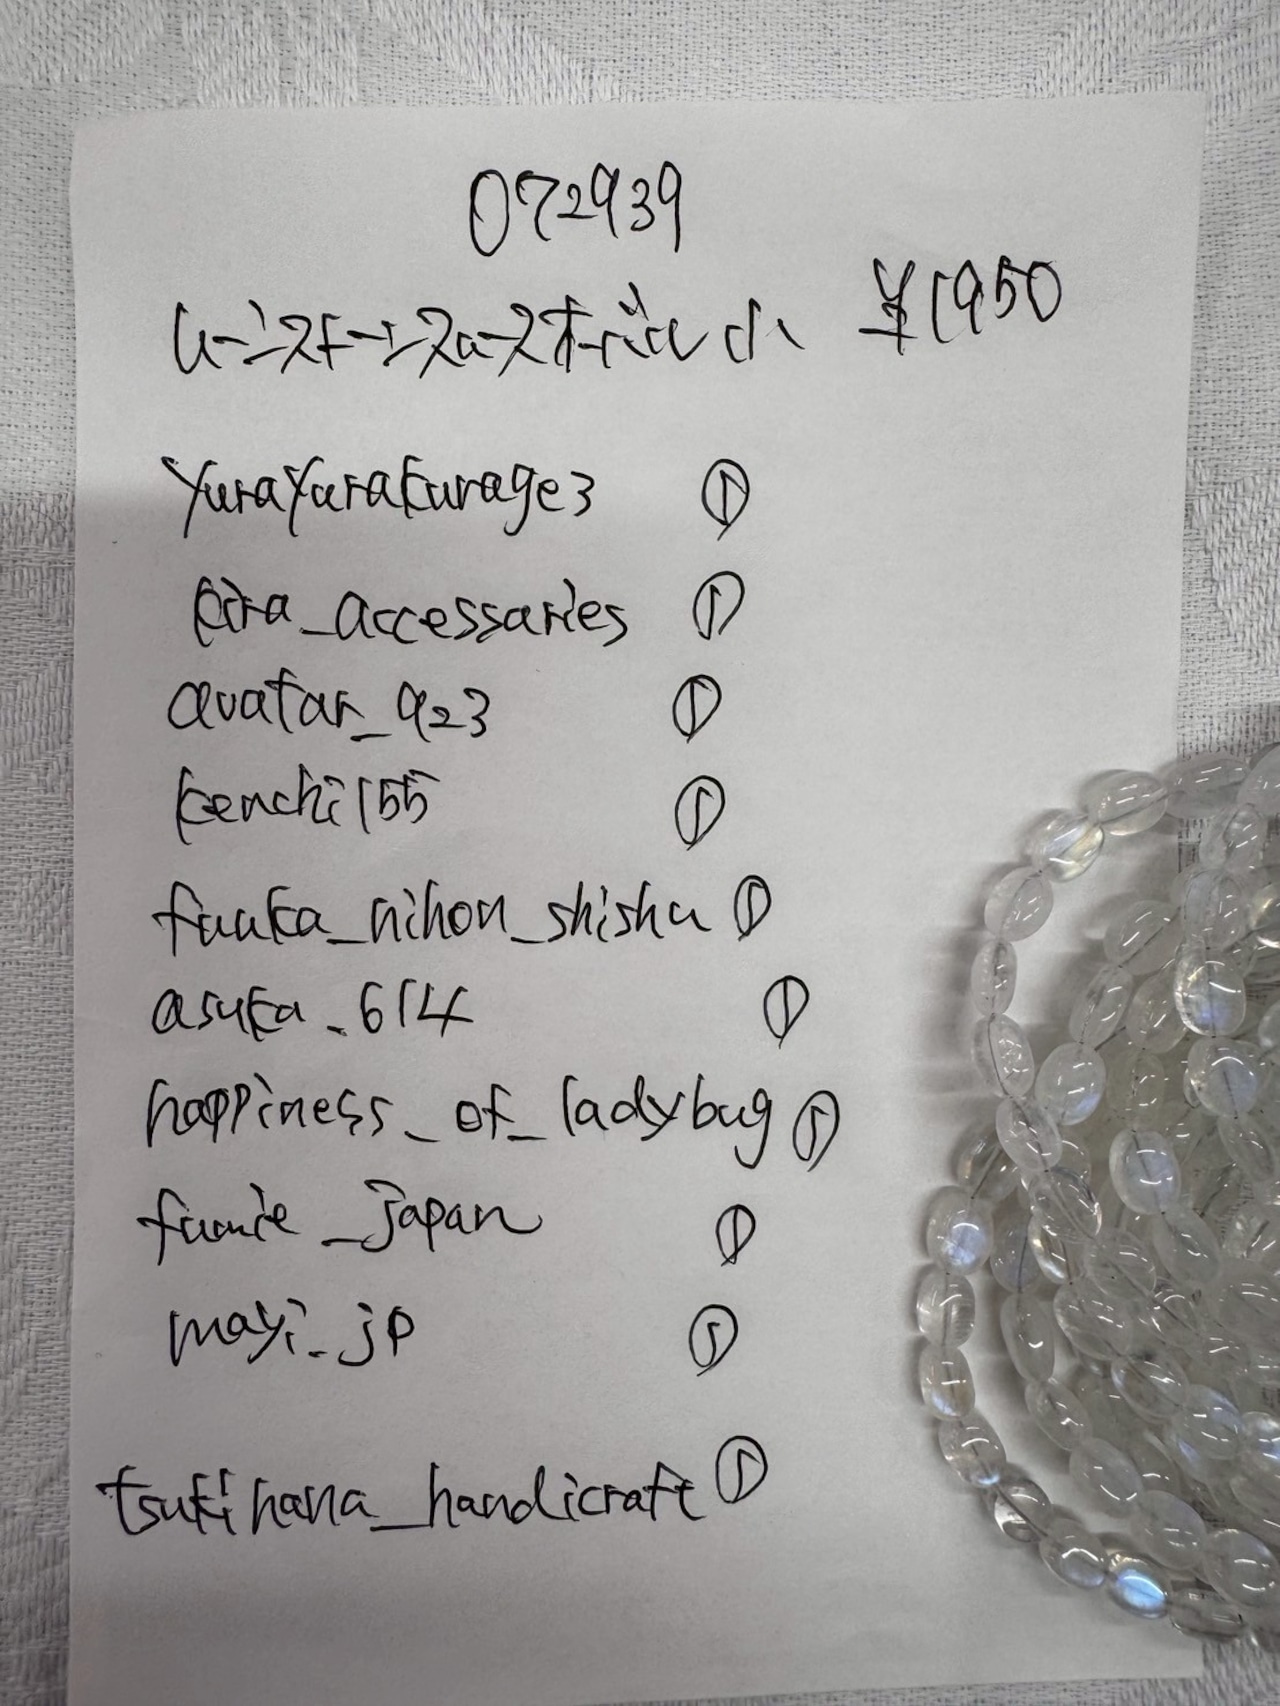 072939
ムーンストーンスムースオーバル 小 ¥1950
yurayurakurage3 ①
kira_accessaries ①
avatar_923 ①
kenchi155 ①
fuuka_nihon_shishu ①
asuka_614 ①
happiness_of_ladybug ①
fumie_japan ①
mayi_jp ①
tsukihana_handicraft ①